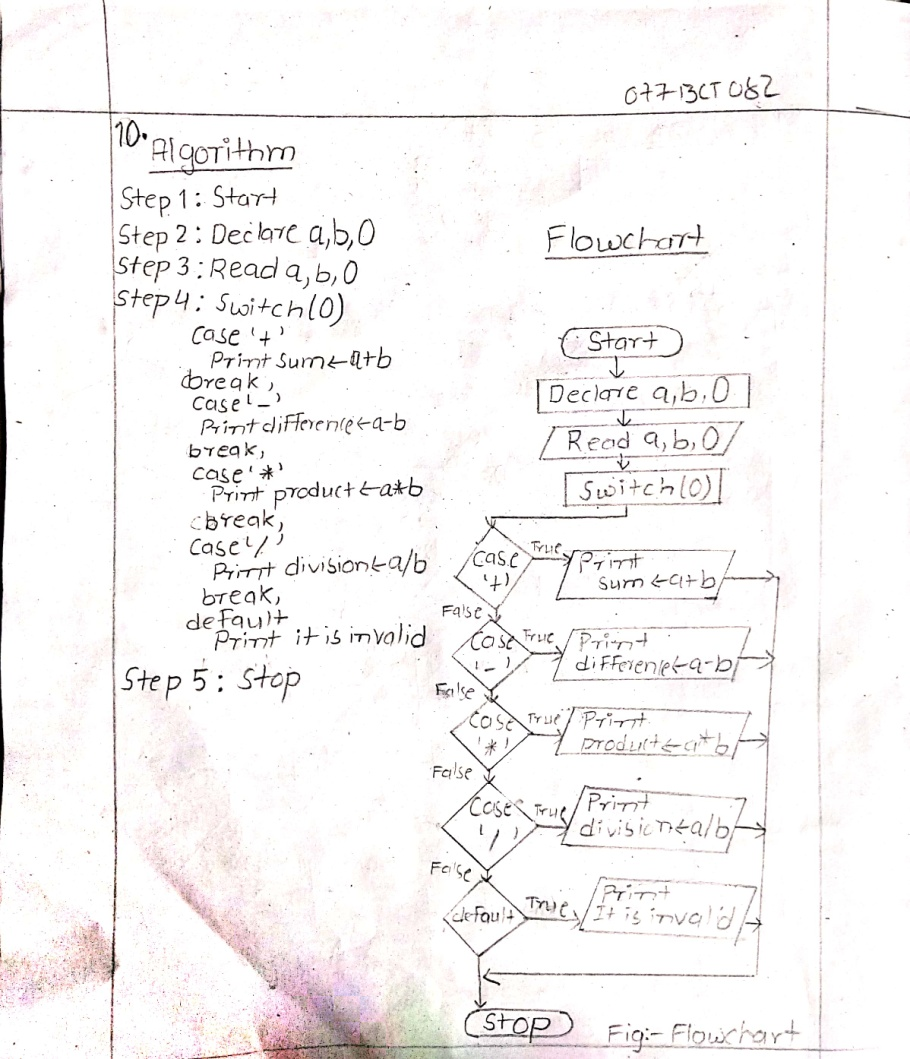 077BCT082
10. Algorithm
Step 1: Start
Step 2: Declare a,b,O
Step 3: Read a,b,O
Step 4: Switch(O)
Case '+'
Print sum←a+b
break,
Case '-'
Print difference←a-b
break,
Case '*'
Print product←a*b
break,
Case '/'
Print division←a/b
break,
default
Print it is invalid
Step 5: Stop
Flowchart
Start
Declare a,b,O
Read a,b,O
Switch(O)
Case
'+'
True
Print
sum←a+b
False
Case
'-'
True
Print
difference←a-b
False
Case
'*'
True
Print
product←a*b
False
Case
'/'
True
Print
division←a/b
False
default
True
Print
It is invalid
Stop
Fig:- Flowchart